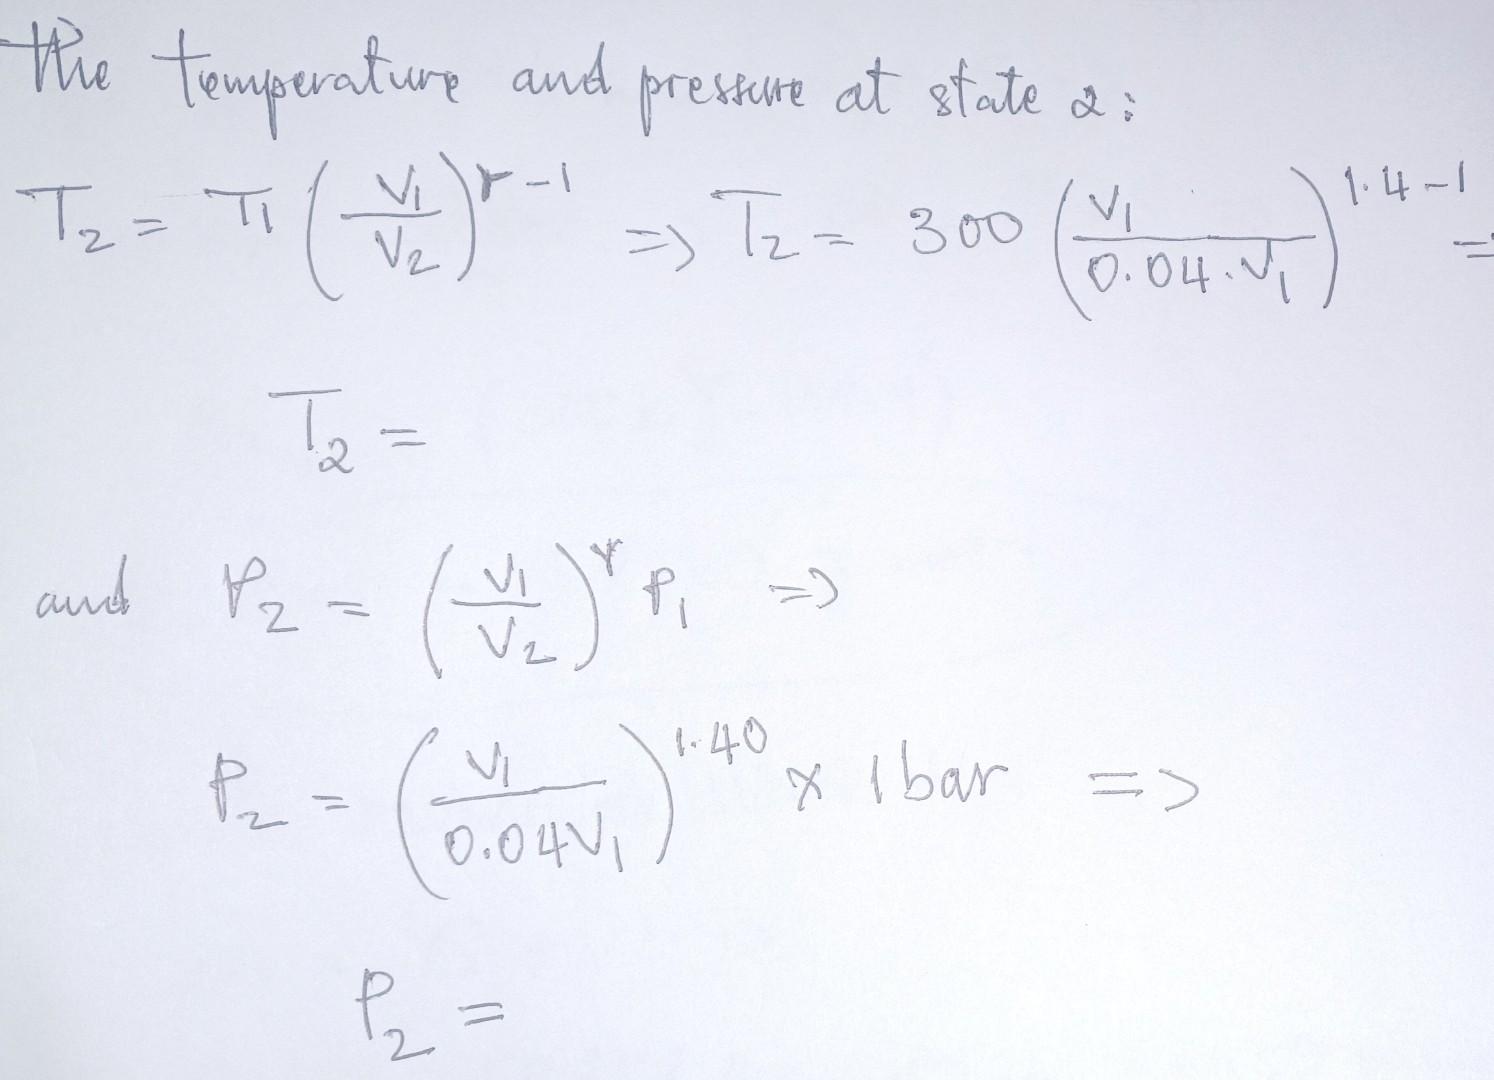 The temperature and pressure at state 2:
T₂ = T₁ (V₁/V₂)^(r-1) => T₂ = 300 (V₁/0.04.V₁)^(1.4-1) =
T₂ =
and P₂ = (V₁/V₂)^r P₁ =>
P₂ = (V₁/0.04V₁)^1.40 x 1 bar =>
P₂ =